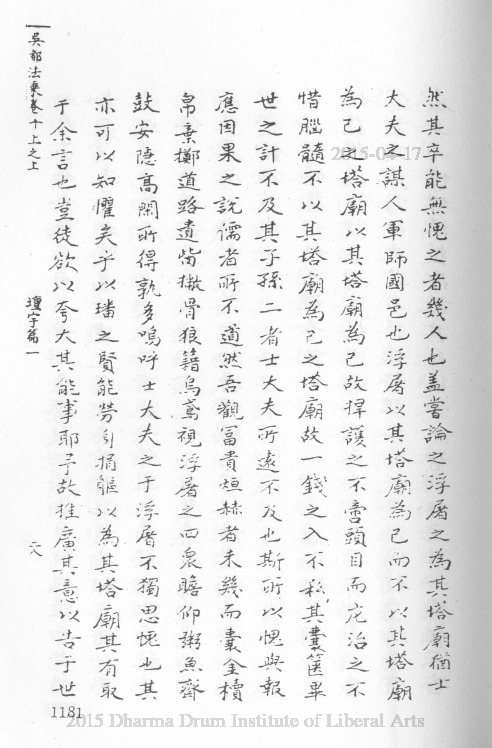 然其卒能無愧之者幾人也盖嘗論之浮屠之為其塔廟猶士
大夫之謀人軍師國邑也浮屠以其塔廟為己而不以其塔廟
為己之塔廟以其塔廟為己故捍護之不啻頭目而庀治之不
惜腦髓不以其塔廟為己之塔廟故一錢之入不私其囊篋畢
世之計不及其子孫二者士大夫所遠不及也斯所以愧與報
應因果之說儒者所不道然吾觀冨貴烜赫者未幾而囊金櫝
帛棄擲道路遺胔撒骨狼籍烏鳶視浮屠之四衆瞻仰粥魚齋
鼓安隠髙閑所得孰多嗚呼士大夫之于浮屠不獨思愧也其
亦可以知懼矣乎以璠之賢能勞引捐軀以為其塔廟其有取
于余言也豈徒欲以夸大其能事耶予故推廣其意以告于世
吳都法乗卷十上之上
壇宇篇一
二八
1181
2015-04-17
2015 Dharma Drum Institute of Liberal Arts